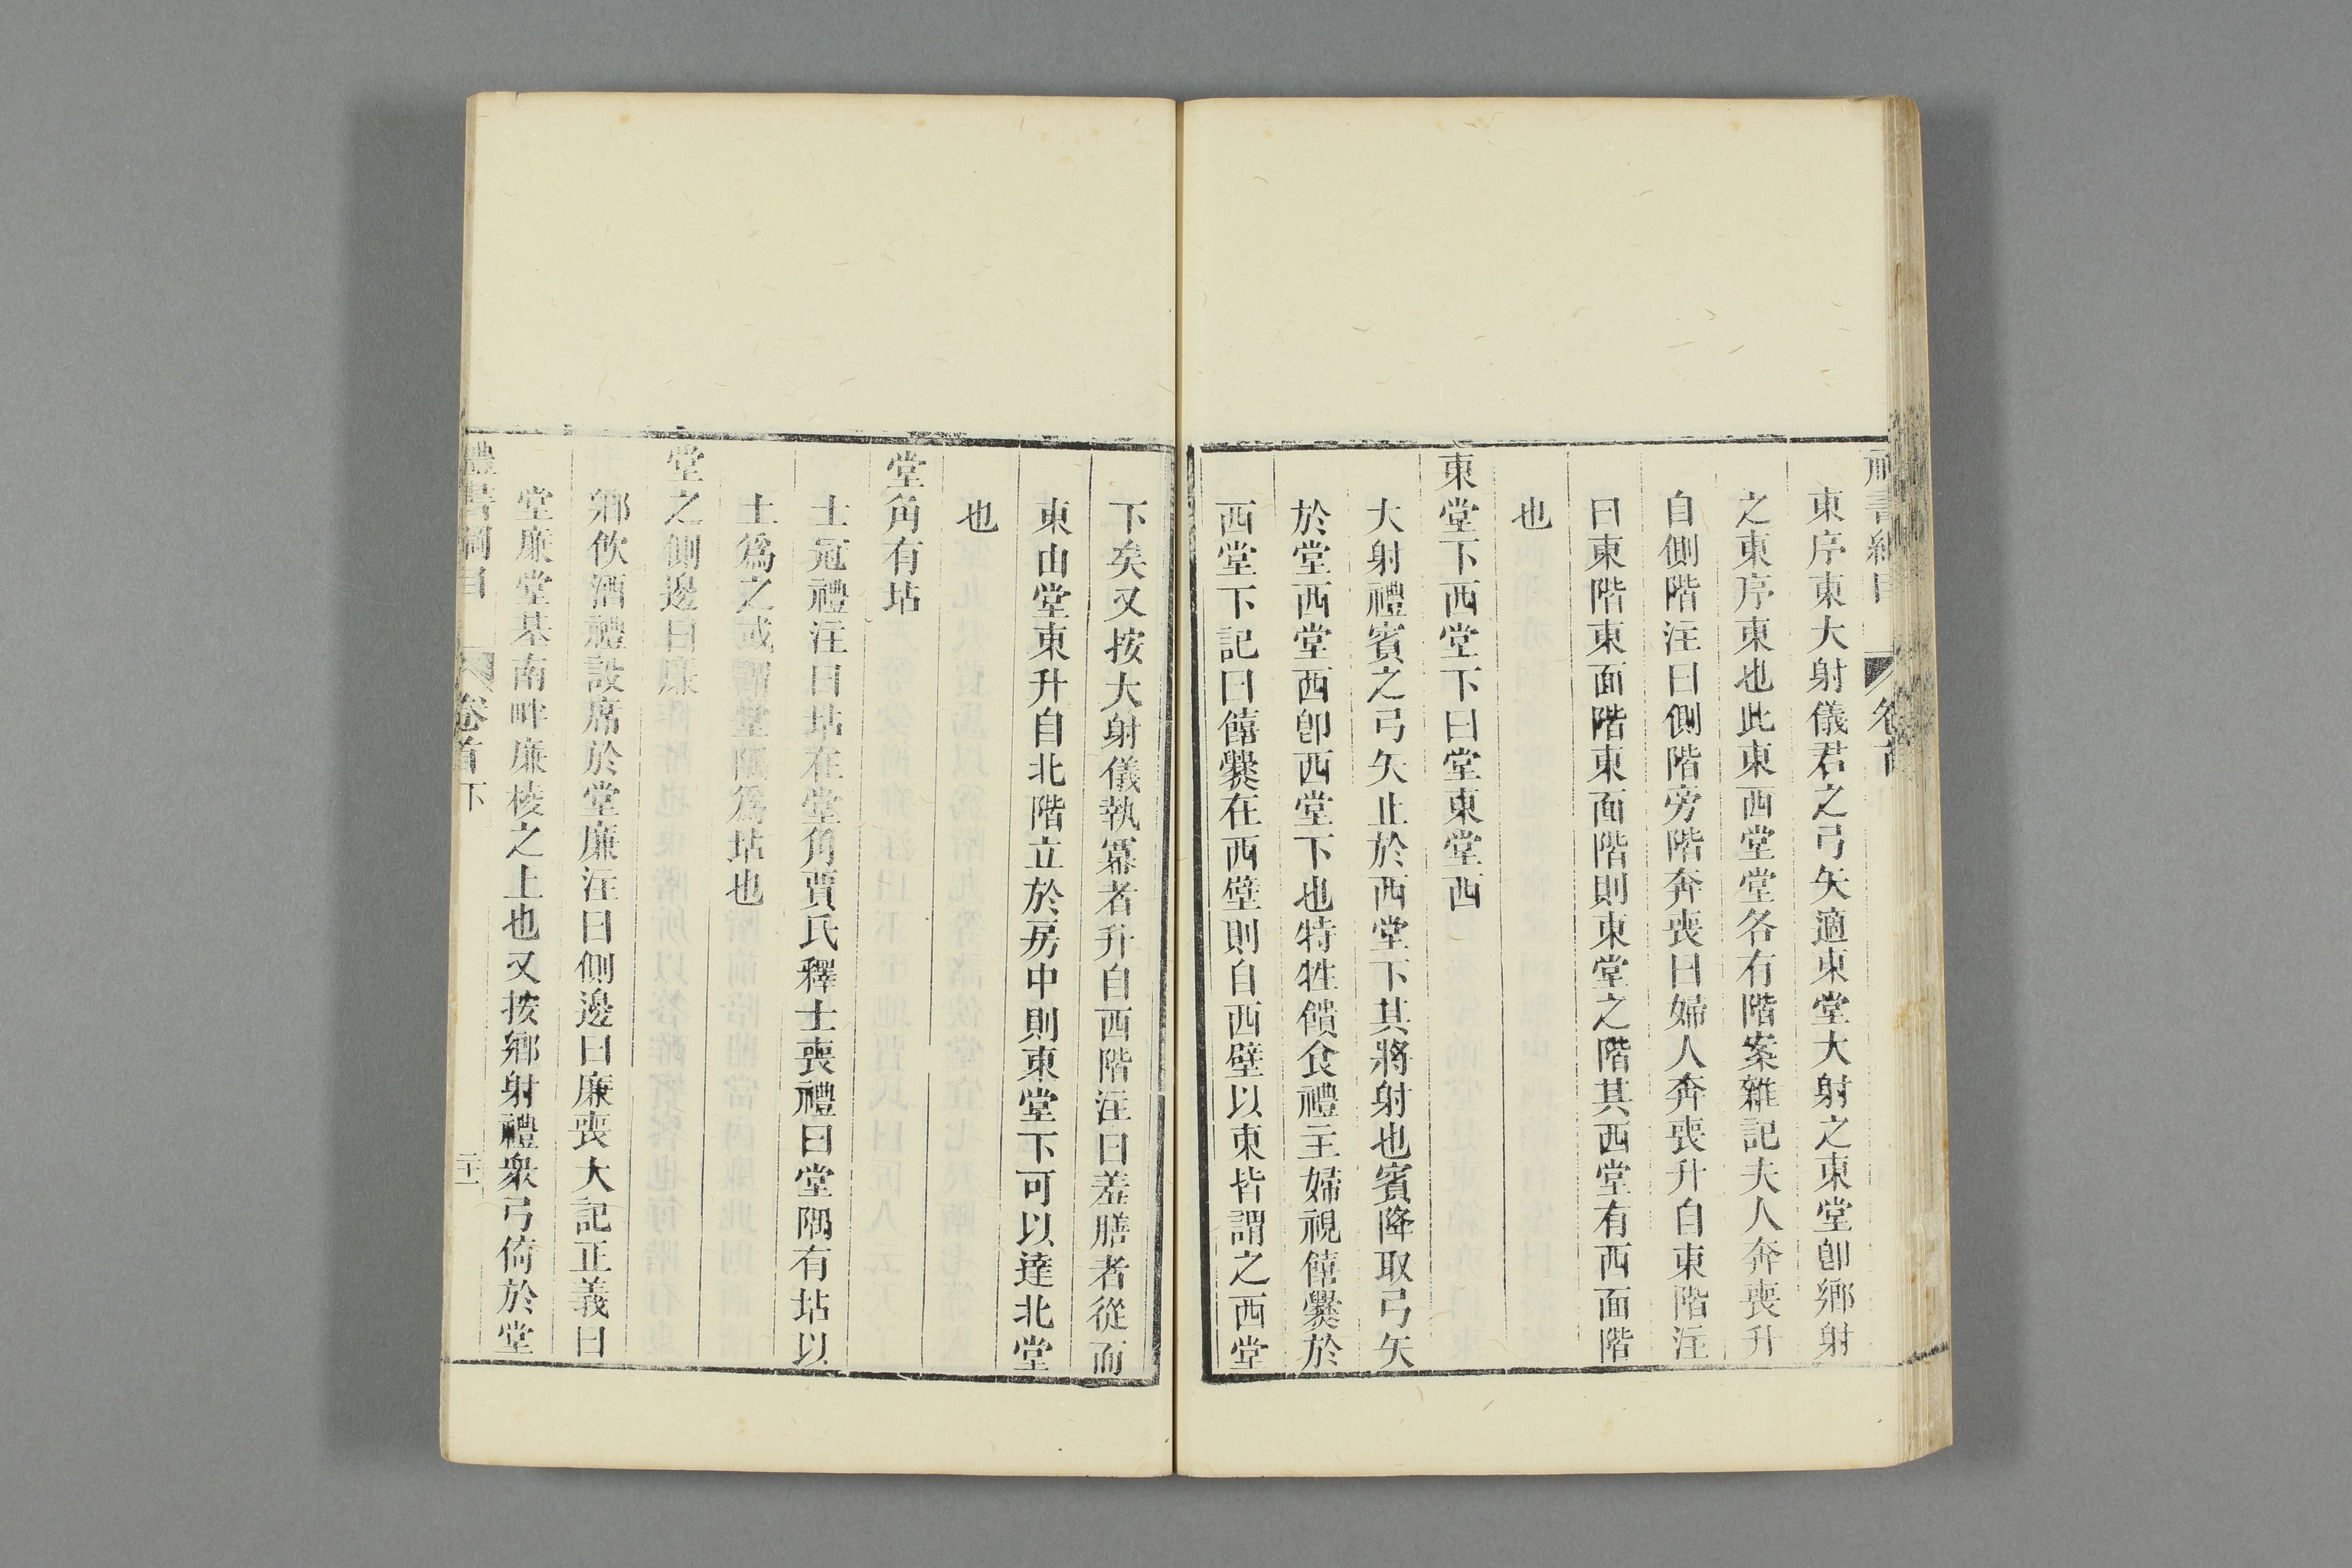 東序東大射儀君之弓矢適東堂大射之東堂卽鄉射
之東序東也此東西堂堂各有階案雜記夫人奔喪升
自側階注曰側階旁階奔喪曰婦人奔喪升自東階注
曰東階東面階東面階則東堂之階其西堂有西面階
也
東堂下西堂下曰堂東堂西
大射禮賓之弓矢止於西堂下其將射也賓降取弓矢
於堂西堂西卽西堂下也特牲饋食禮主婦視饎爨於
西堂下記曰饎爨在西壁則自西壁以東皆謂之西堂
下矣又按大射儀執冪者升自西階注曰羞膳者從而
東由堂東升自北階立於房中則東堂下可以達北堂
也
堂角有坫
士冠禮注曰坫在堂角賈氏釋士喪禮曰堂隅有坫以
土爲之或謂堂隅爲坫也
堂之側邊曰廉
鄉飲酒禮設席於堂廉注曰側邊曰廉喪大記正義曰
堂廉堂基南畔廉棱之上也又按鄉射禮衆弓倚於堂
禮書綱目 卷首下